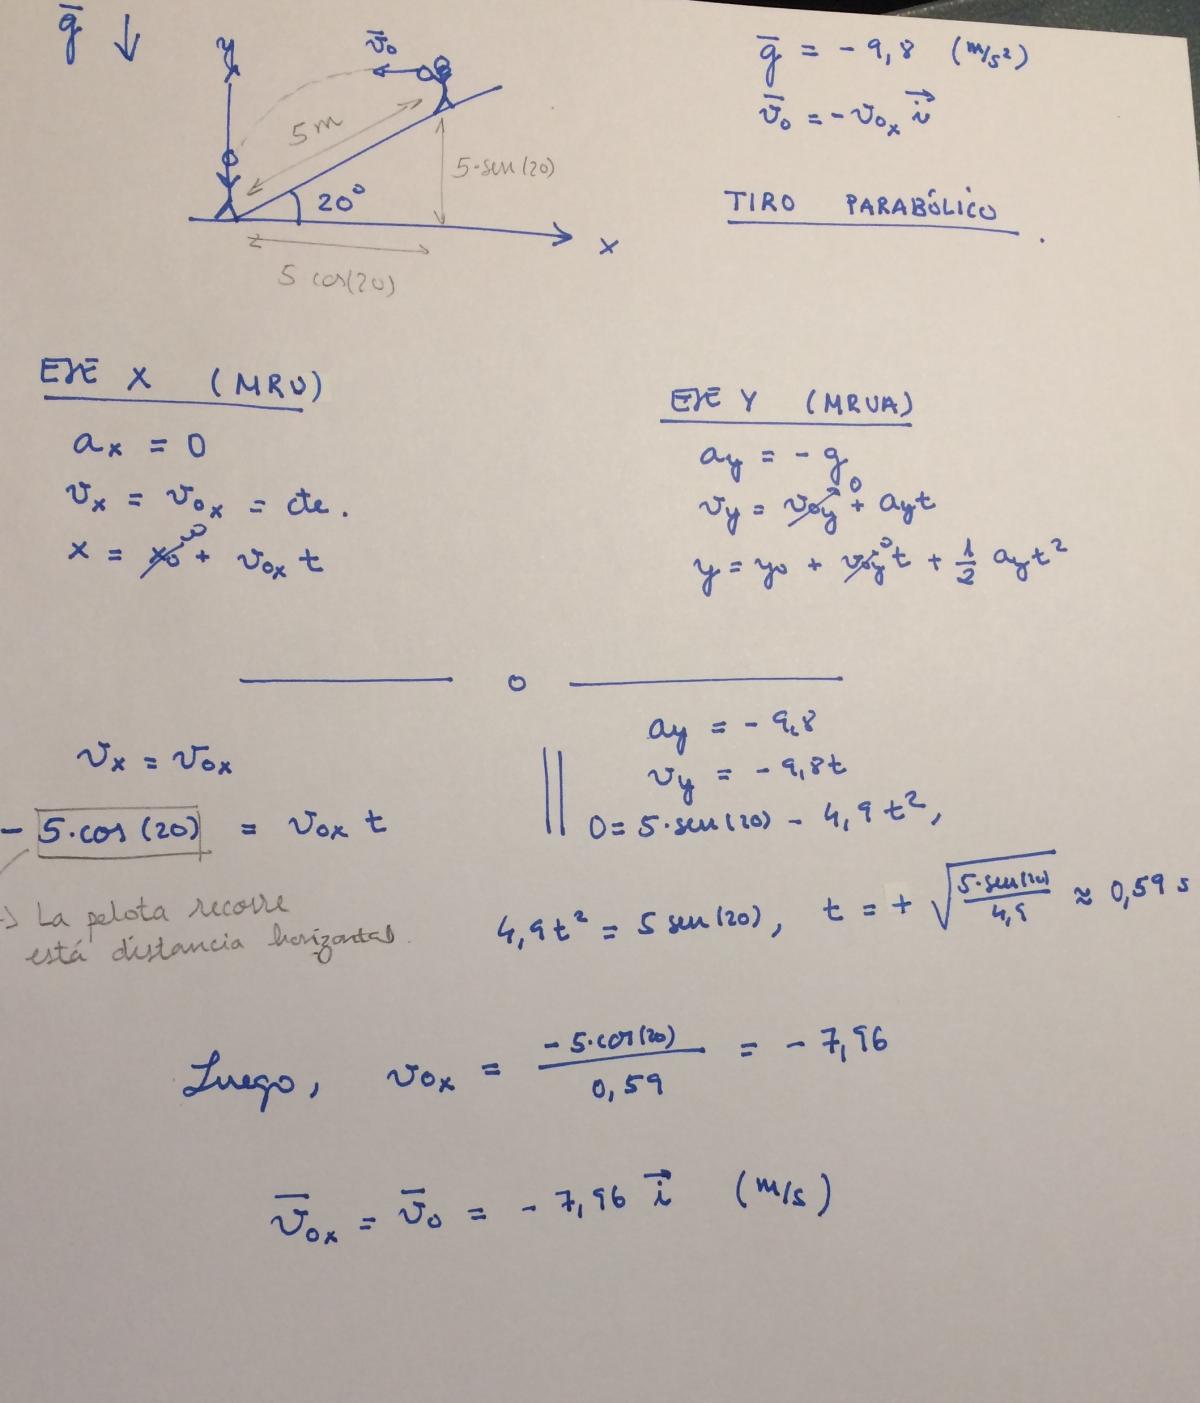 g̅ ↓
y
v̅₀
5m
20°
5·sen(20)
x
5 cos(20)
g̅ = - 9,8 (m/s²)
v̅₀ = - v₀ₓ i⃗
TIRO PARABÓLICO.
EJE X (MRU)
aₓ = 0
vₓ = v₀ₓ = cte.
x = x₀⁰ + v₀ₓ t
EJE Y (MRUA)
a_y = - g
v_y = v₀y⁰ + a_y t
y = y₀ + v₀y⁰ t + 1/2 a_y t²
o
vₓ = v₀ₓ
- 5·cos(20) = v₀ₓ t
-> La pelota recorre
está distancia horizontal.
a_y = - 9,8
v_y = - 9,8t
0 = 5·sen(20) - 4,9 t²,
4,9t² = 5 sen(20), t = + √(5·sen(20)/4,9) ≈ 0,59 s
Luego, v₀ₓ = -5·cos(20)/0,59 = - 7,96
v̅₀ₓ = v̅₀ = - 7,96 i⃗ (m/s)